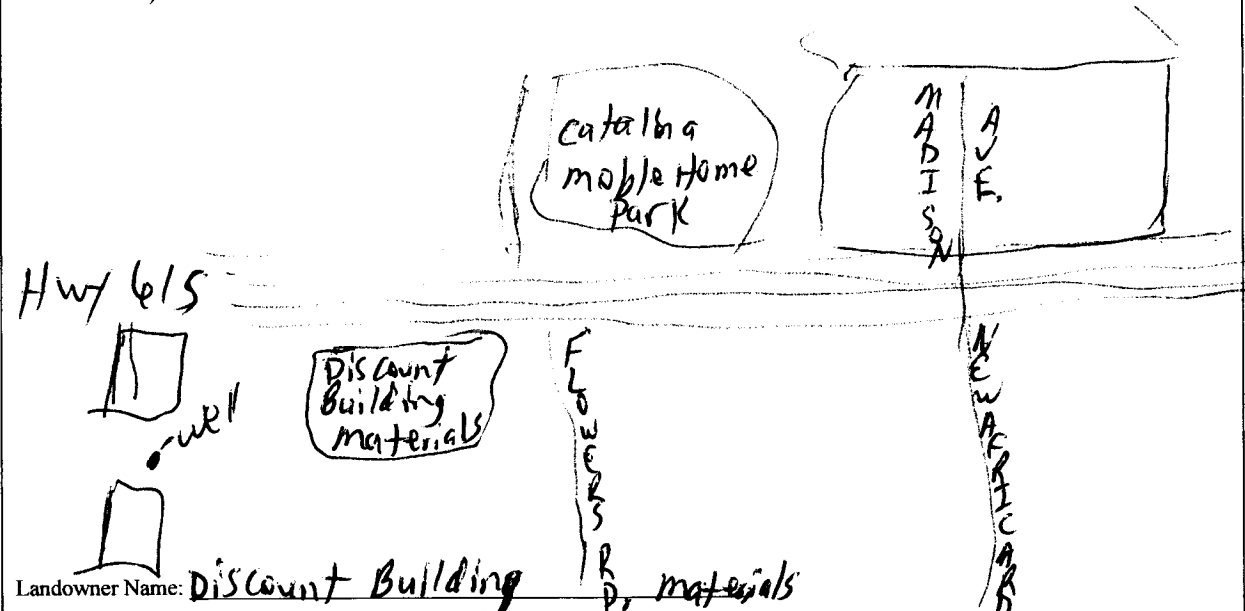 Catalina
moble Home
Park
MADISON
AVE.
Hwy 61S
well
Discount
Building
materials
FLOWERS RD.
NEWAFRICARD
Landowner Name: Discount Building materials